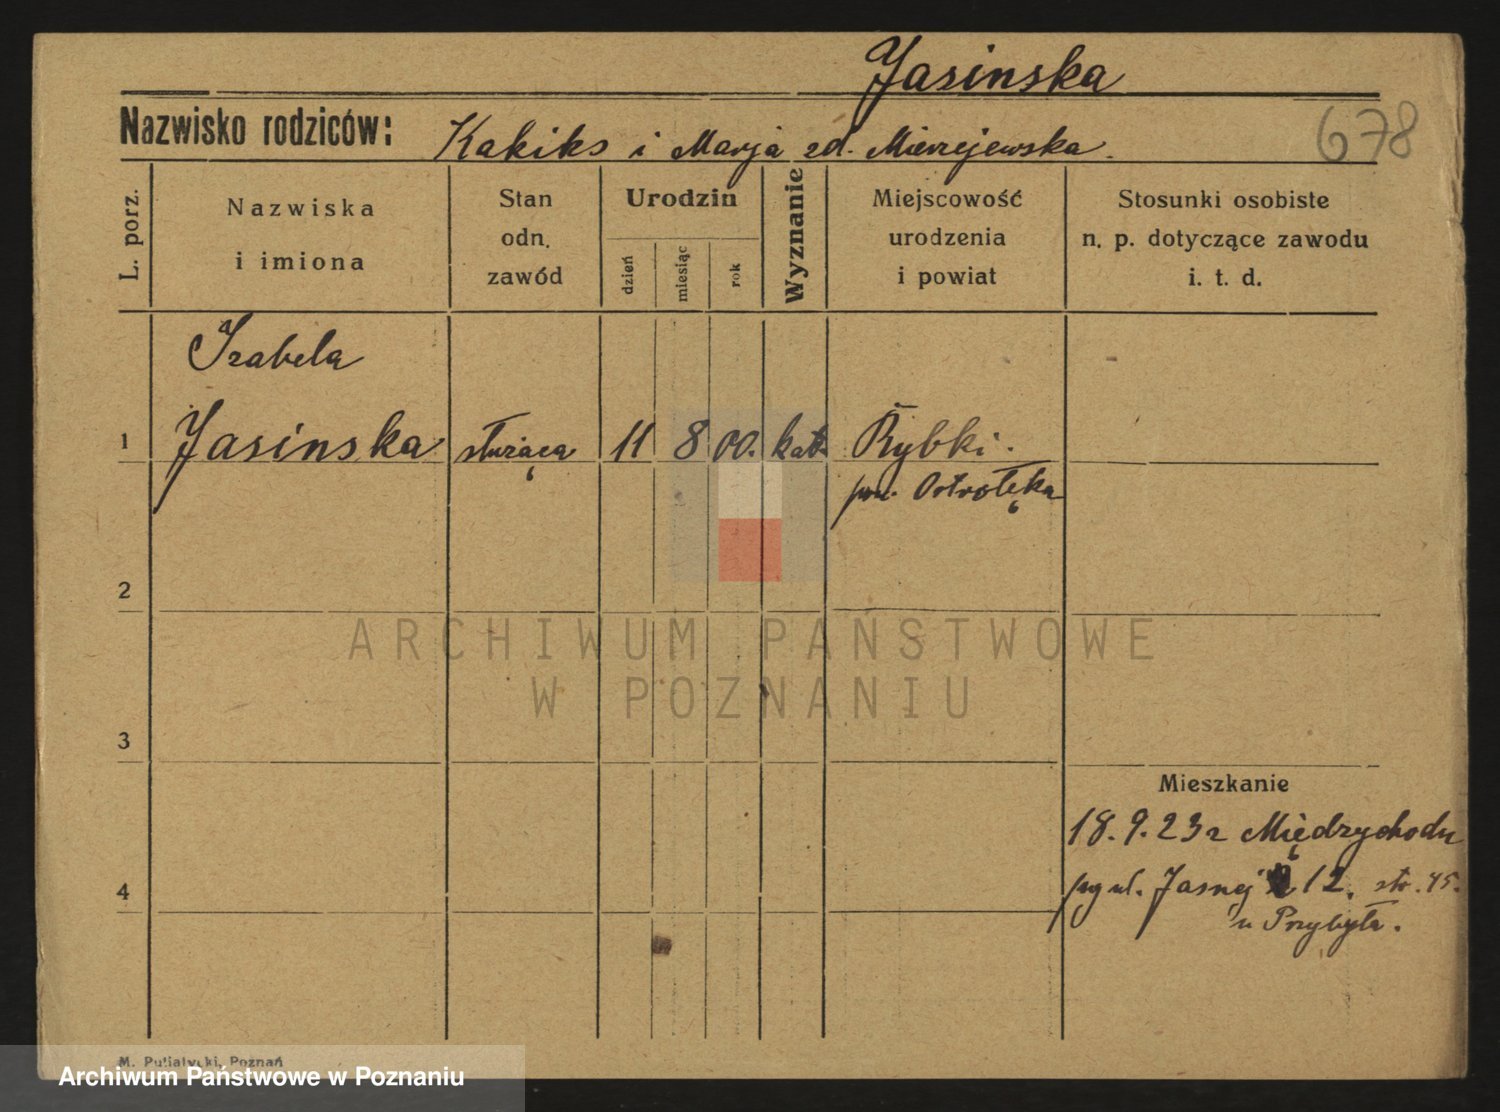 Jasinska
Nazwisko rodziców: Kakiks i Marja zd. Mierzejewska.
678
L. porz.
Nazwiska i imiona
Stan odn. zawód
Urodzin
dzień
miesiąc
rok
Wyznanie
Miejscowość urodzenia i powiat
Stosunki osobiste n. p. dotyczące zawodu i. t. d.
Izabela
1 Jasinska służąca 11 8 00. kat. Rybki.
pow. Ostrołęka
2
ARCHIWUM PAŃSTWOWE
W POZNANIU
3
Mieszkanie
18.9.23 z Międzychodu
4
ul. Jasnej 12. str. 45.
u Przybyła.
M. Putiatycki, Poznań
Archiwum Państwowe w Poznaniu